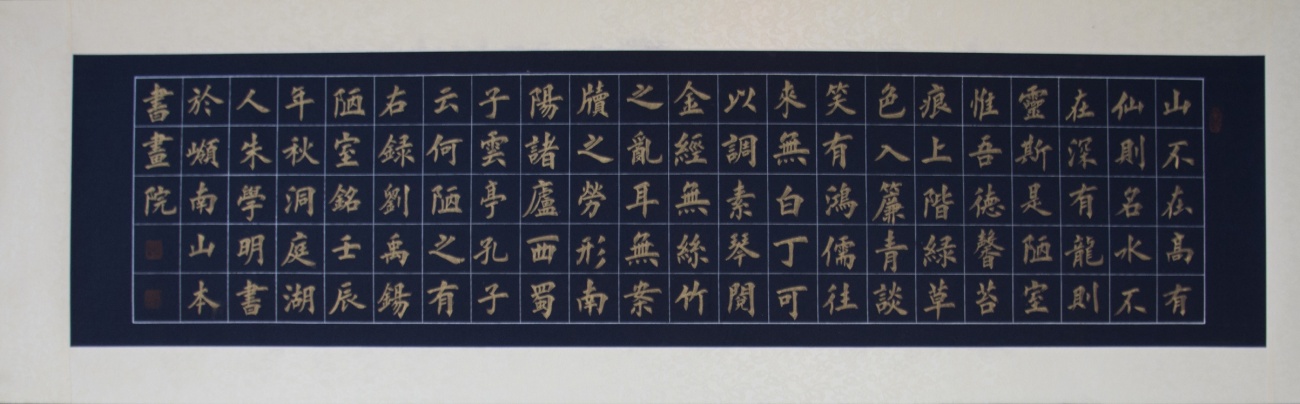 山不在高有
仙則名水不
在深有龍則
靈斯是陋室
惟吾德馨苔
痕上階緑草
色入簾青談
笑有鴻儒往
來無白丁可
以調素琴閲
金經無絲竹
之亂耳無案
牘之勞形南
陽諸廬西蜀
子雲亭孔子
云何陋之有
右録劉禹錫
陋室銘壬辰
年秋洞庭湖
人朱學明書
於南山本
書畫院